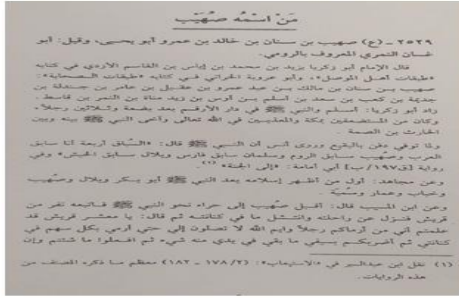 من اسمه صُهَيْب
٢٥٢٩ ـ (ع) صهيب بن سنان بن خالد بن عمرو أبو يحيى، وقيل: أبو
غسان النمري المعروف بالرومي.
قال الإمام أبو زكريا يزيد بن محمد بن إياس بن القاسم الأزدي في كتابه
«طبقات أهل الموصل»، وأبو عروبة الحراني في كتابه «طبقات الصحابة»:
صهيب بن سنان بن مالك بن عبد عمرو بن عقيل بن عامر بن جندلة بن
جذيمة بن كعب بن سعد بن أسلم بن أوس بن زيد مناة بن النمر بن قاسط.
زاد أبو زكريا: أسلم والنبي ﷺ في دار الأرقم بعد بضعة وثلاثين رجلاً،
وكان من المستضعفين بمكة والمعذبين في الله تعالى وآخى النبي ﷺ بينه وبين
الحارث بن الصمة.
ولما توفي دفن بالبقيع وروى أنس أن النبي ﷺ قال: «السُبَّاق أربعة أنا سابق
العرب وصُهَيب سابق الروم وسلمان سابق فارس وبلال سابق الحبش» وفي
رواية [ق١٩٧/ب] أبي أمامة: «إلى الجنة» (١).
وعن مجاهد: أول من أظهر إسلامه بعد النبي ﷺ أبو بكر وبلال وصُهَيب
وخباب وعمار وسُمَيَّة
وعن ابن المسيب قال: أقبل صُهَيب إلى نحو النبي ﷺ فاتبعه نفر من
قريش فنزل عن راحلته وانتثل ما في كنانته ثم قال: يا معشر قريش قد
علمتم أني من أرماكم رجلاً وايم الله لا تصلون إلي حتى أرمي بكل سهم في
كنانتي ثم أضربكم بسيفي ما بقي في يدي منه شيء ثم افعلوا ما شئتم وإن
(١) نقل ابن عبد البر في «الاستيعاب»: (٢/ ١٧٨ ـ ١٨٢) معظم ما ذكره المصنف من
هذه الروايات.